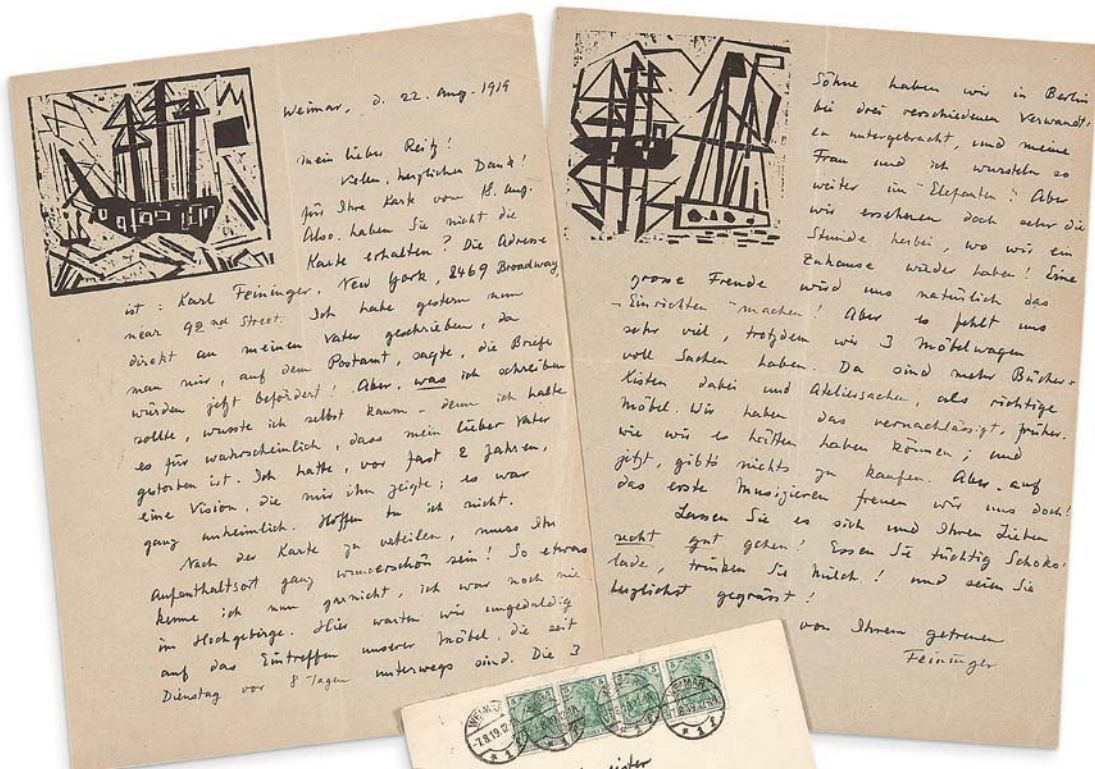 Weimar, d. 22. Aug. 1919
Mein lieber Reitz!
Vielen, herzlichen Dank!
für Ihre Karte vom 18. Aug.
Also haben Sie nicht die
Karte erhalten? Die Adresse
ist: Karl Feininger, New York, 2469 Broadway,
near 92nd Street. Ich habe gestern nun
direkt an meinen Vater geschrieben, da
man mir, auf dem Postamt, sagte, die Briefe
würden jetzt befördert! Aber, was ich schreiben
sollte, wusste ich selbst kaum – denn ich halte
es für wahrscheinlich, dass mein lieber Vater
gestorben ist. Ich hatte, vor fast 2 Jahren,
eine Vision, die mir ihn zeigte; es war
ganz unheimlich. Hoffen tu ich nicht.
Nach der Karte zu urteilen, muss Ihr
Aufenthaltsort ganz wunderschön sein! So etwas
kenne ich nun garnicht, ich war noch nie
im Hochgebirge. Hier warten wir ungeduldig
auf das Eintreffen unserer Möbel, die seit
Dienstag vor 8 Tagen unterwegs sind. Die 3
Söhne haben wir in Berlin
bei drei verschiedenen Verwandt-
en untergebracht, und meine
Frau und ich wursteln so
weiter im "Elefanten". Aber
wir ersehnen doch sehr die
Stunde herbei, wo wir ein
Zuhause wieder haben! Eine
grosse Freude wird uns natürlich das
"Einrichten" machen! Aber es fehlt uns
sehr viel, trotzdem wir 3 Möbelwagen
voll Sachen haben. Da sind mehr Bücher-
Kisten dabei und Ateliersachen, als richtige
Möbel. Wir haben das vernachlässigt, früher.
wie wir es hätten haben können; und
jetzt, gibt's nichts zu kaufen. Aber auf
das erste Musizieren freuen wir uns doch!
Lassen Sie es sich und Ihren Lieben
recht gut gehen! Essen Sie tüchtig Schoko-
lade, trinken Sie Milch! und seien Sie
herzlichst gegrüsst!
von Ihrem getreuen
Feininger
5 5 5 5
WEIMAR
7.8.19.12
WEIMAR